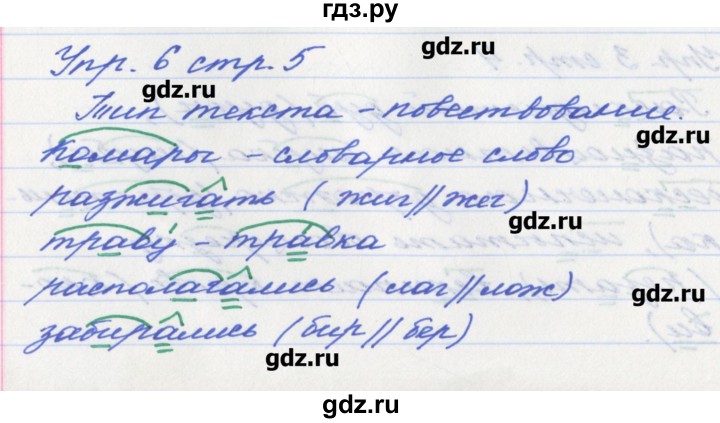 гдз.ру
Упр. 6 стр. 5
gdz.ru
gdz.ru
Тип текста - повествование.
gdz.ru
камары - словарное слово
разжигать (жиг//жег)
gdz.ru
траву́ - тра́вка
располагались (лаг//лож)
gdz.ru
забирались (бир//бер)
gdz.ru
gdz.ru